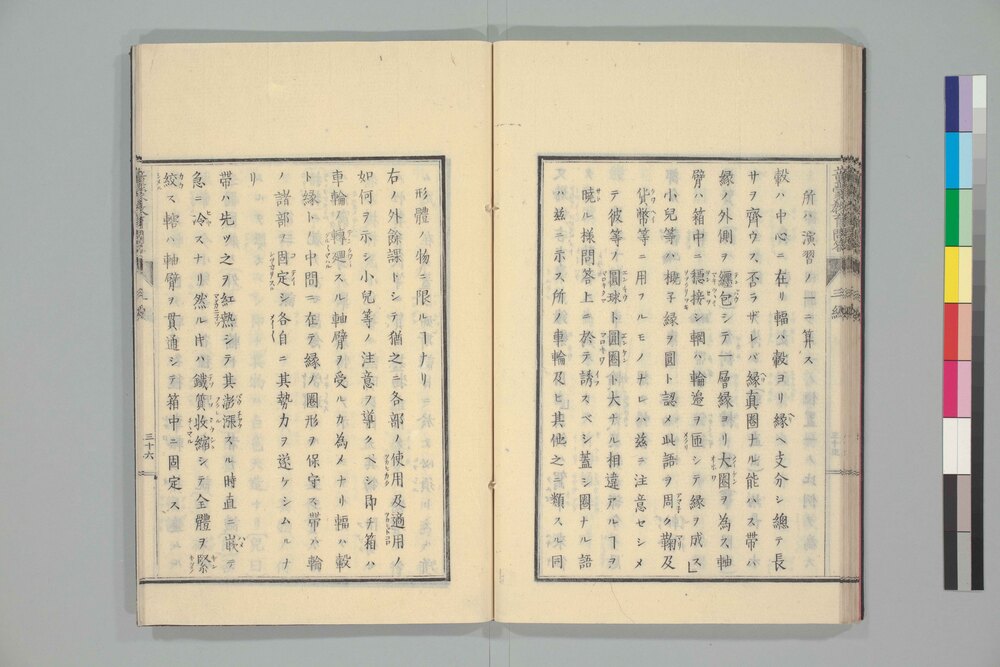 所ハ演習ノ一ニ算ス
轂ハ中心ニ在リ輻ハ轂ヨリ縁ヘ支分シ總テ長
サヲ齊ウス否ラザレバ縁真圈ナル能ハス帶ハ
縁ノ外側ヲ纏包シテ一層縁ヨリ大圈ヲ為ス軸
臂ハ箱中ニ接シ輞ハ輪邉ヲ匝シテ縁ヲ成ス」
小兒等ハ槪子縁ヲ圓ト認メ此語ヲ周ク鞠及
貨幣等ニ用フルモノナレハ茲ニ注意セシメ
テ彼等ノ圓球ト圓圈ト大ナル相違アルヿヲ
曉ル様問答上ニ於テ誘スベシ蓋シ圈ナル語
ハ茲ニ示ス所ノ車輪及ヒ其他之ニ類スル同
形體ノ物ニ限ルヿナリ
右ノ外餘課トシテ猶之ニ各部ノ使用及適用ノ
如何ヲ示シ小兒等ノ注意ヲ導クベシ即チ箱ハ
車輪ノ轉廻スル軸臂ヲ受ルカ為メナリ輻ハ轂
ト縁トノ中間ニ在テ縁ノ圈形ヲ保守ス帶ハ輪
ノ諸部ヲ固定シ各自ニ其勢力ヲ遂ケシムルナ
リ
帶ハ先ツ之ヲ紅熱シテ其膨漲スル時直ニ嵌テ
急ニ冷スナリ然ル片ハ鐵質收縮シテ全體ヲ緊
絞ス轄ハ軸臂ヲ貫通シテ箱中ニ固定ス
三十六